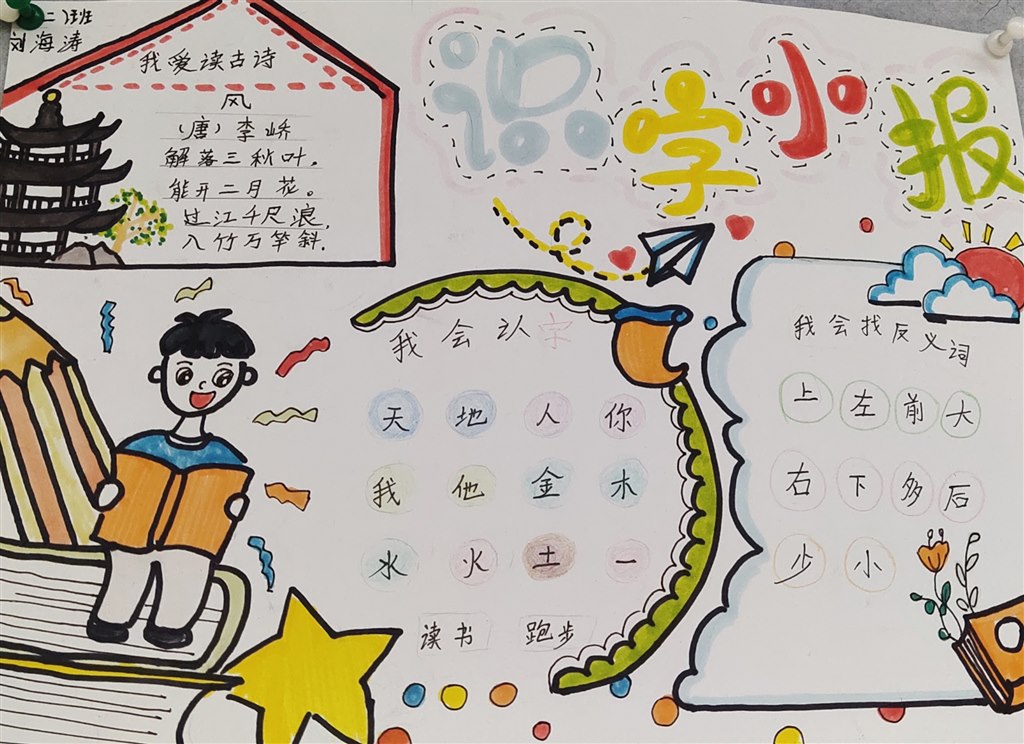 二班
刘海涛
识字小报
我爱读古诗
风
（唐）李峤
解落三秋叶，
能开二月花。
过江千尺浪，
入竹万竿斜．
我会认字
天 地 人 你
我 他 金 木
水 火 土 一
读书 跑步
我会找反义词
上 左 前 大
右 下 多 后
少 小